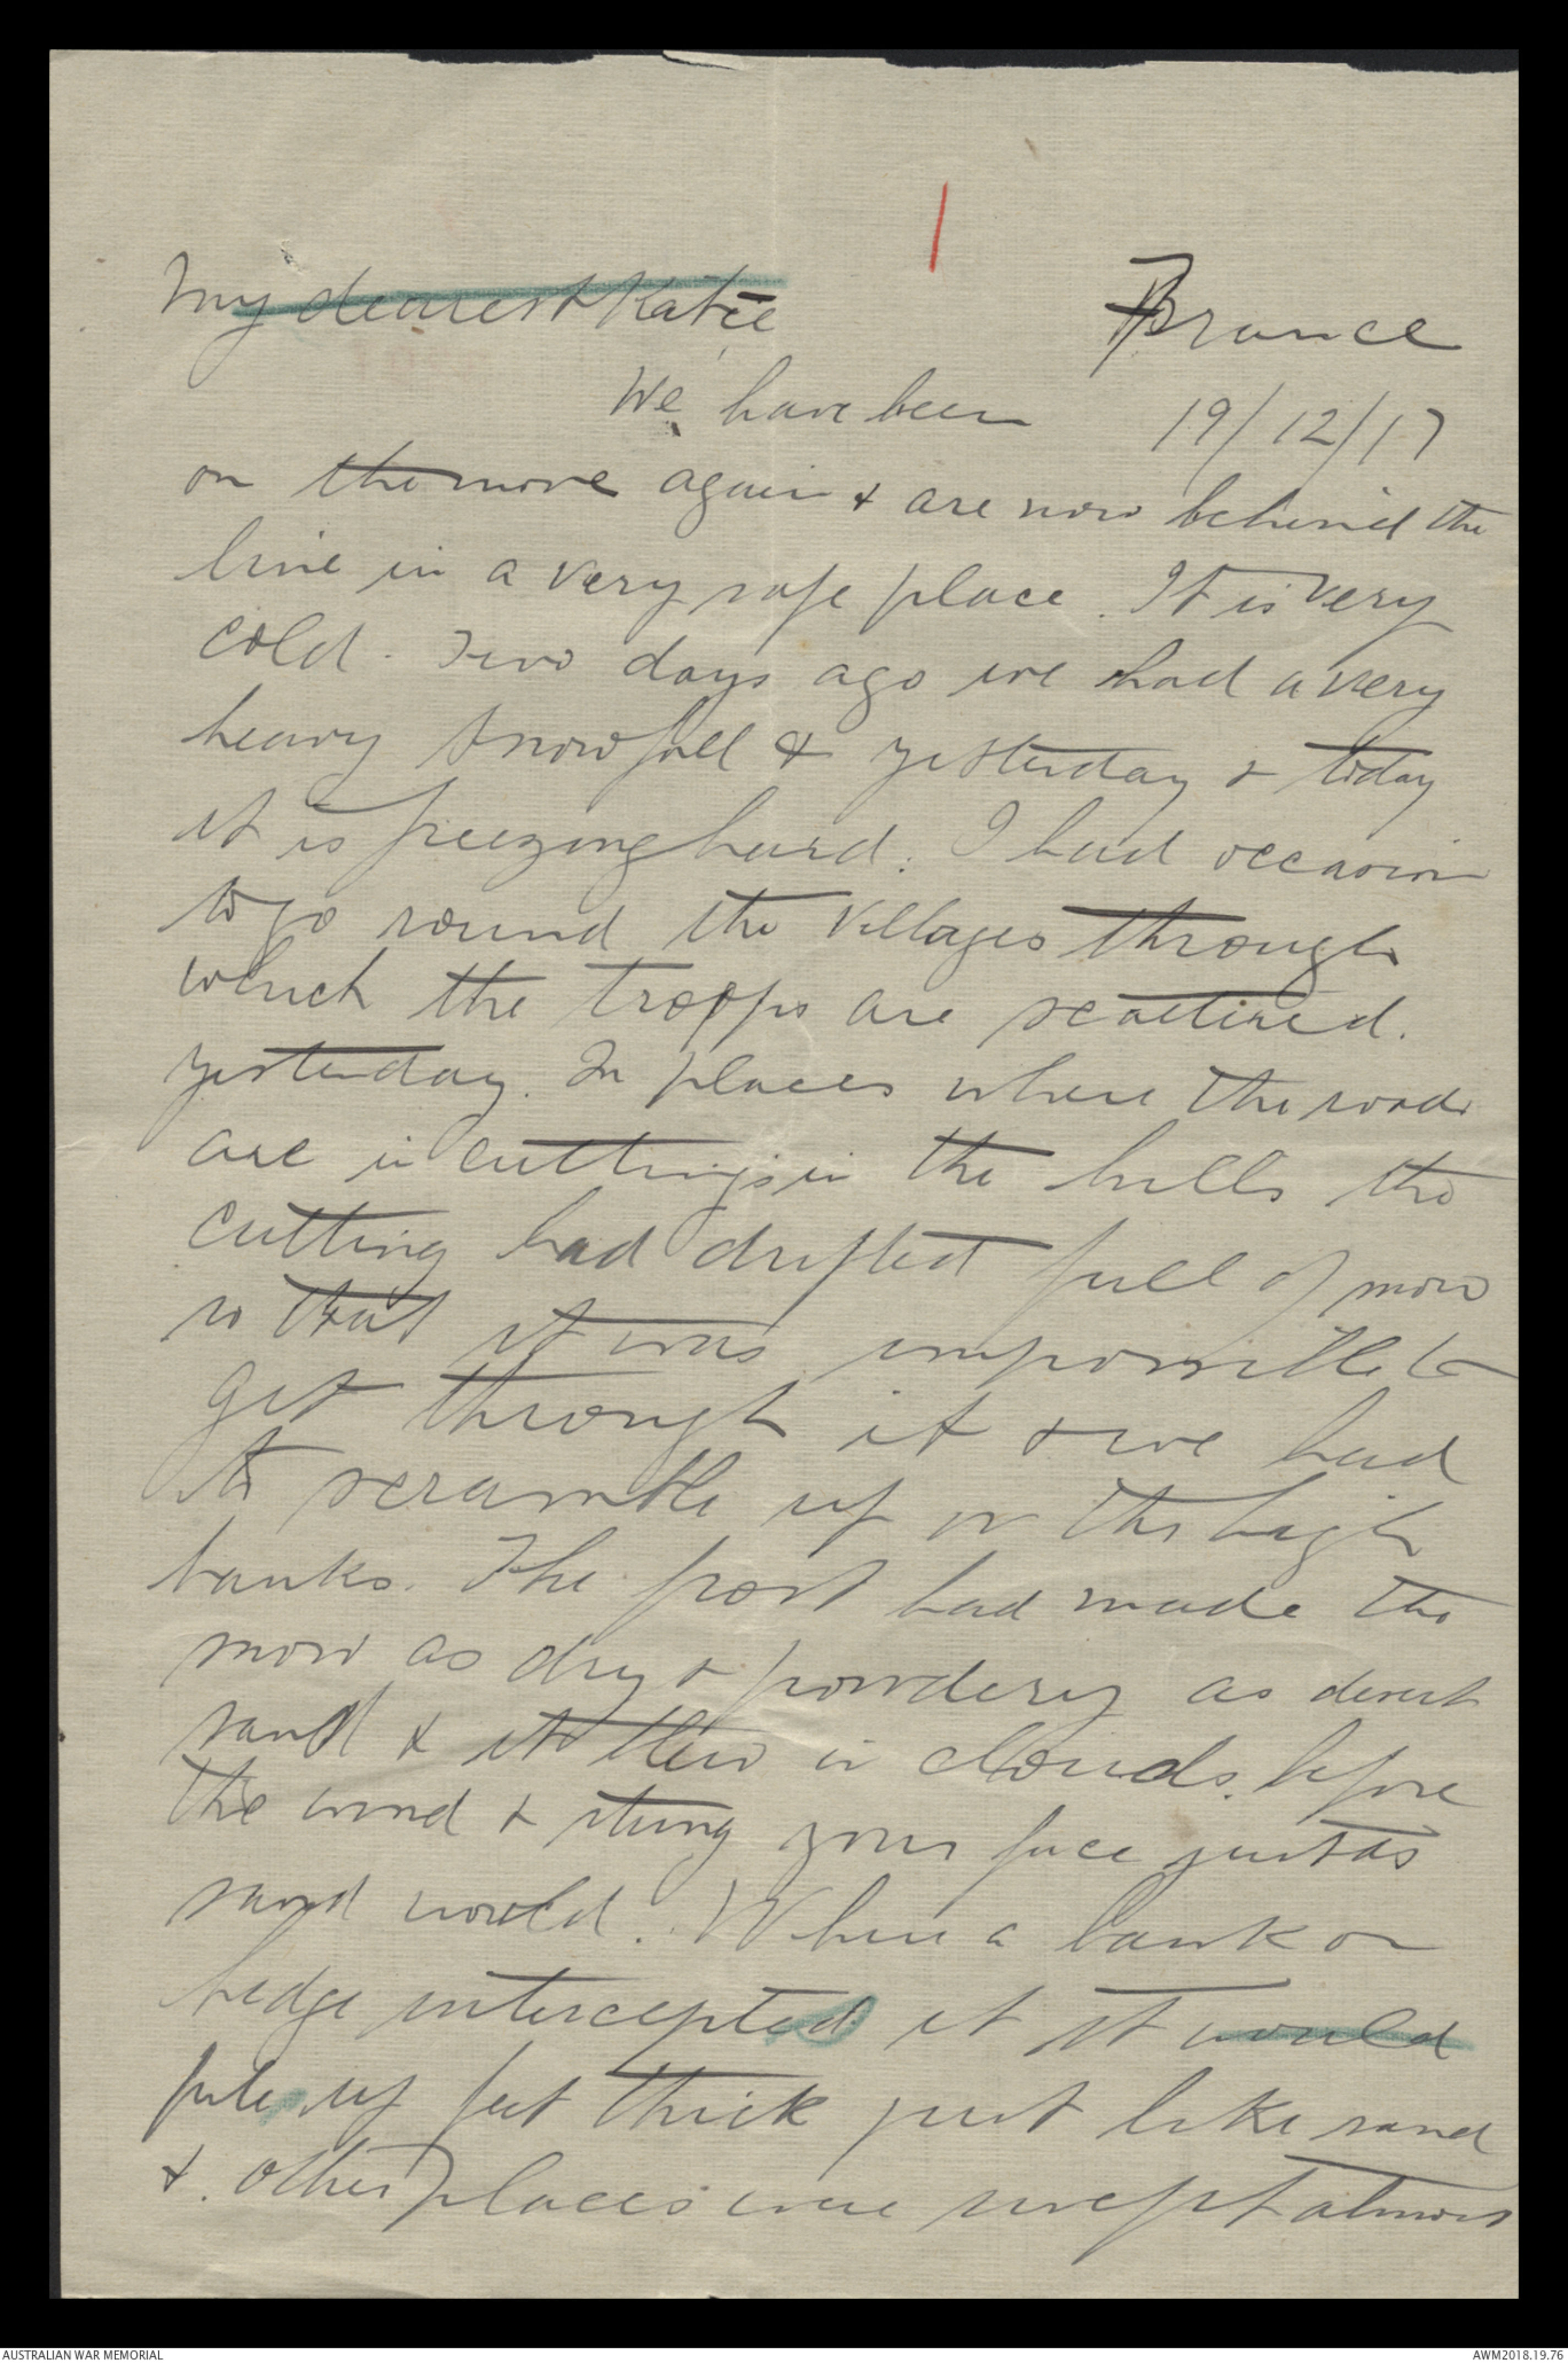 My dearest Katie
France
We have been 19/12/17
on the move again & are now behind the
line in a very safe place. It is very
cold. Two days ago we had a very
heavy snowfall & yesterday & today
it is freezing hard. I had occasion
to go round the villages through
which the troops are scattered.
yesterday. In places where the roads
are in cuttings in the hills the
cutting had drifted full of snow
so that it was impossible to
get through it & we had
to scramble up on the high
banks. The frost had made the
snow as dry & powdery as desert
sand & it flew in clouds before
the wind & stung your face just as
sand would. Where a bank or
hedge intercepted it it would
pile up feet thick just like sand
& other places were swept almost
AUSTRALIAN WAR MEMORIAL
AWM2018.19.76